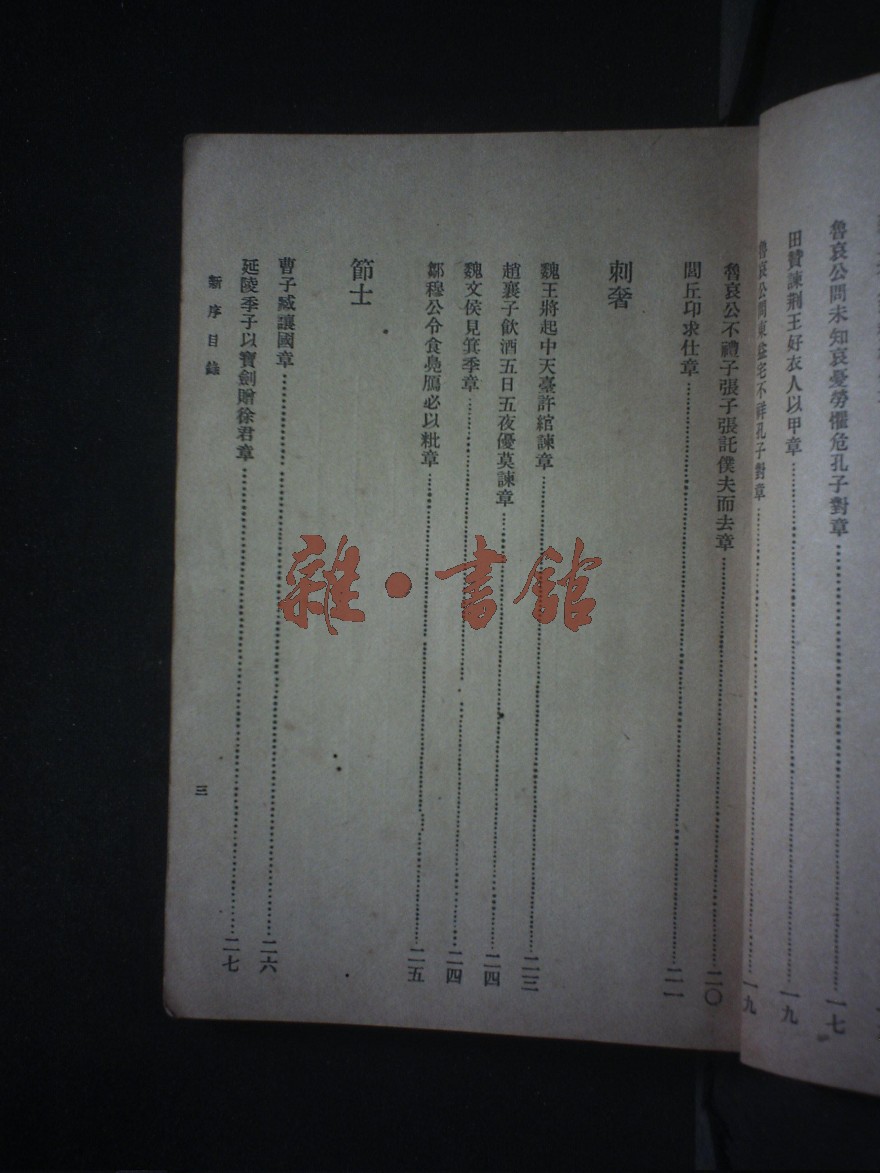 魯哀公問未知哀憂勞懼危孔子對章……一七
田贊諫荆王好衣人以甲章……一九
魯哀公問東益宅不祥孔子對章……一九
魯哀公不禮子張子張託僕夫而去章……二〇
閭丘卬求仕章……二一
刺奢
魏王將起中天臺許綰諫章……二三
趙襄子飲酒五日五夜優莫諫章……二四
魏文侯見箕季章……二四
鄒穆公令食鳧鴈必以粃章……二五
節士
曹子臧讓國章……二六
延陵季子以寶劍贈徐君章……二七
新序目錄
三
雜·書館